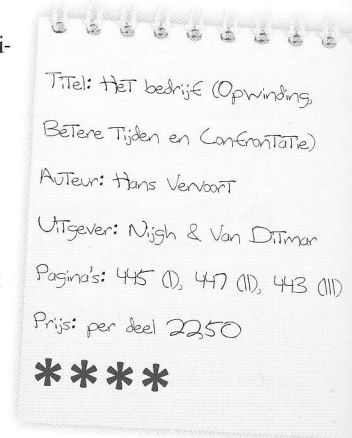 i-
Titel: Het bedrijf (Opwinding,
Betere Tijden en Confrontatie)
Auteur: Hans Vervoort
Uitgever: Nijgh & Van Ditmar
Pagina's: 445 (I), 447 (II), 443 (III)
Prijs: per deel 22,50
****